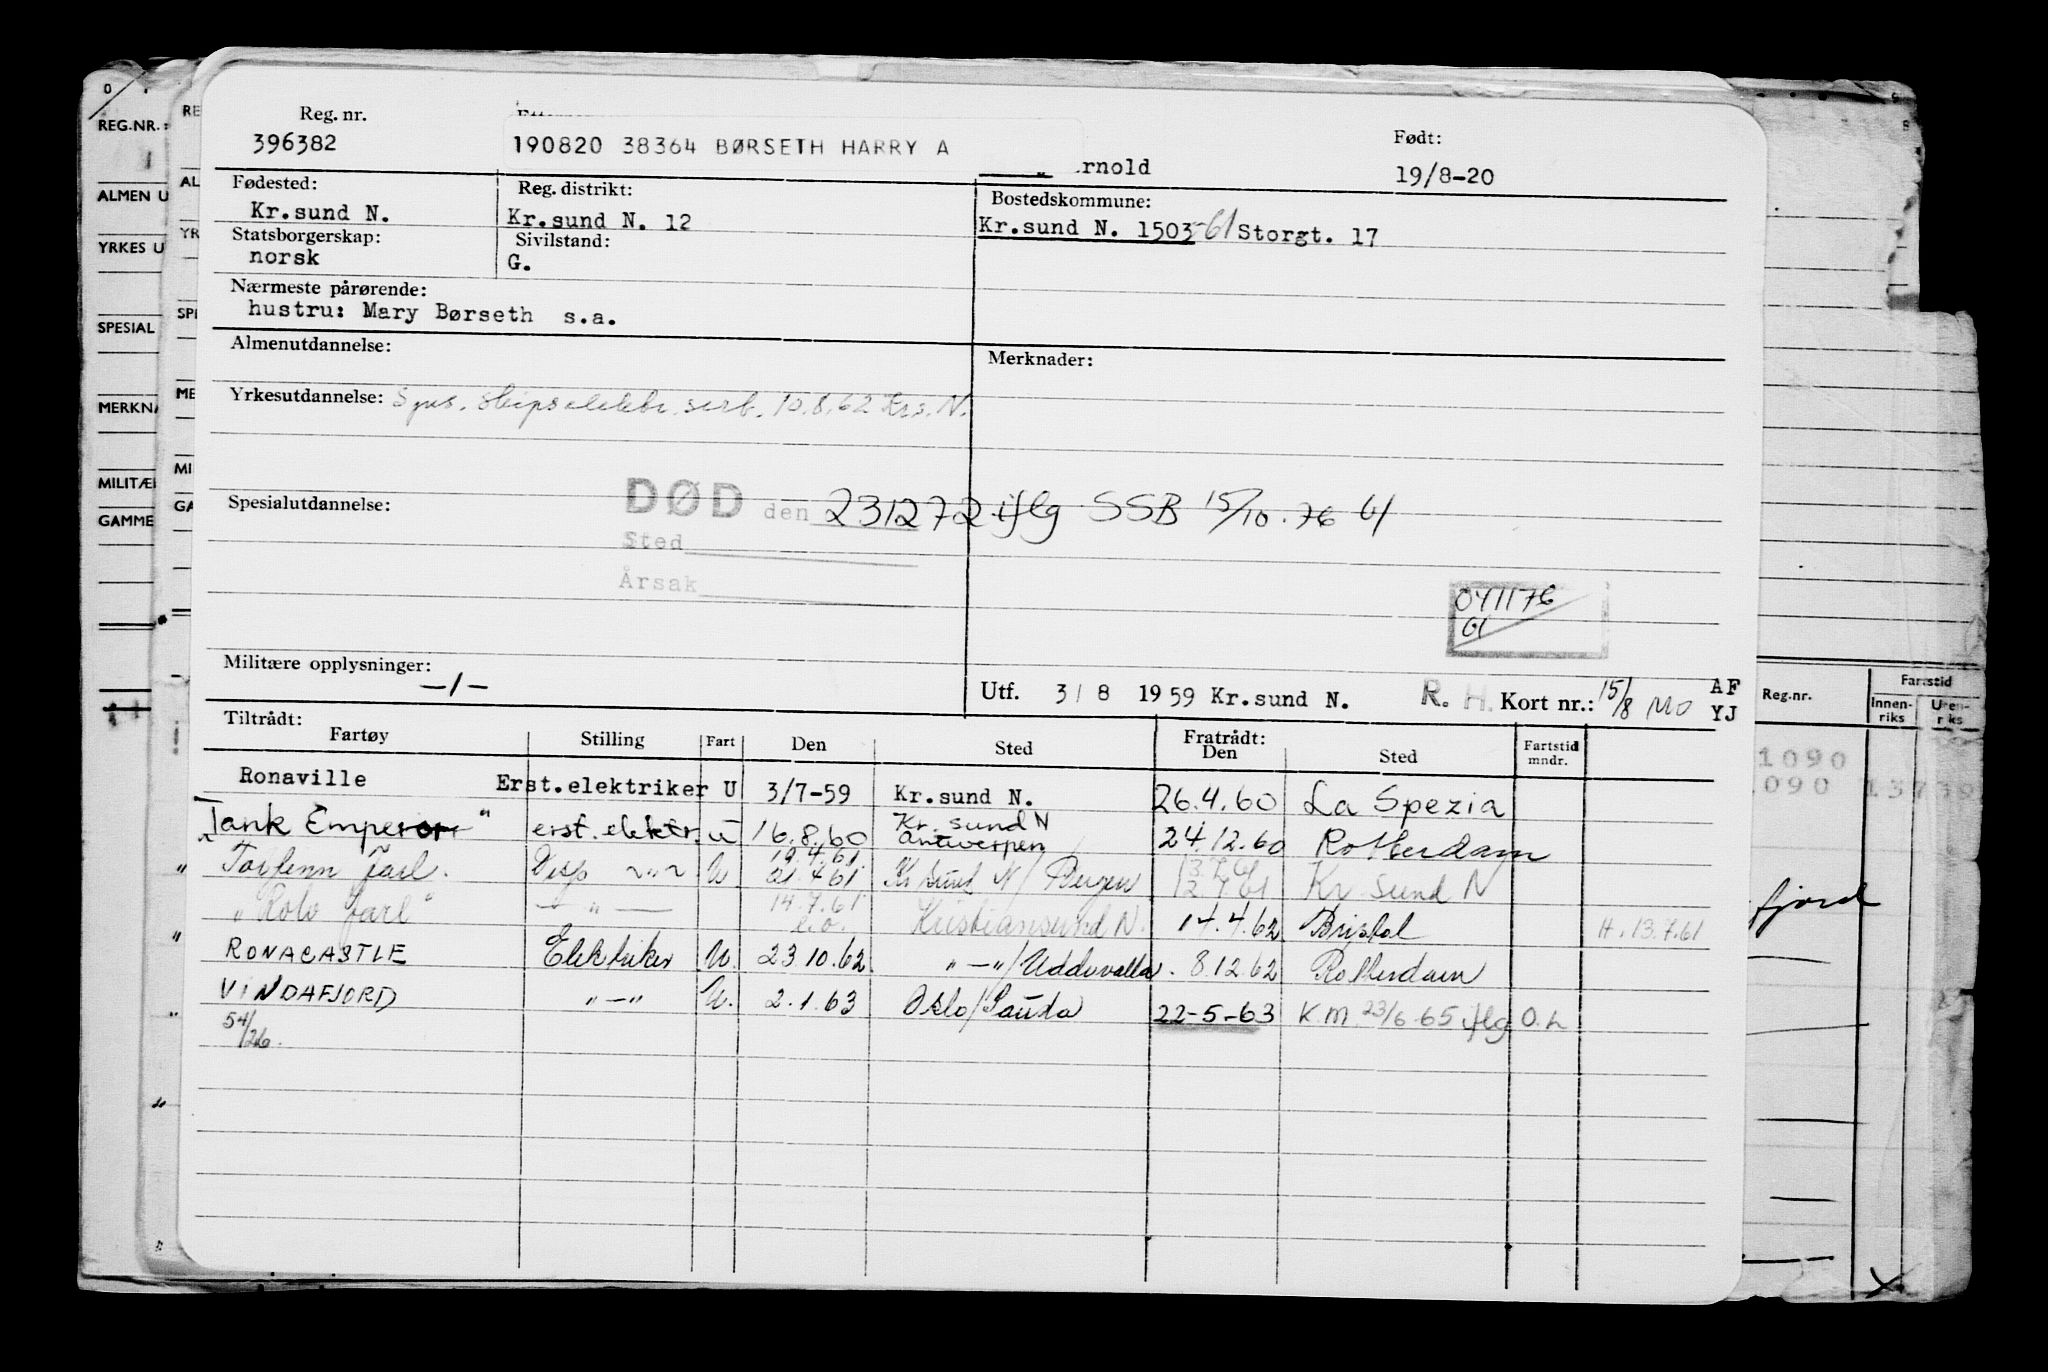 Reg. nr.
396382
190820 38364 BØRSETH HARRY A
rnold
Født:
19/8-20
Fødested:
Kr.sund N.
Reg. distrikt:
Kr.sund N. 12
Bostedskommune:
Kr.sund N. 1503-61 Storgt. 17
Statsborgerskap:
norsk
Sivilstand:
G.
Nærmeste pårørende:
hustru: Mary Børseth s.a.
Almenutdannelse:
Merknader:
Yrkesutdannelse: 10.8.62 Kr.s. N.
Spesialutdannelse:
DØD den 231272 iflg SSB 15/10.76
Sted
Årsak
041176
Militære opplysninger:
-/-
Utf. 3/8 1959 Kr.sund N. R. H. Kort nr.: 15/8 MO
AF
YJ
Tiltrådt:
Fartøy Stilling Fart Den Sted Fratrådt: Den Sted Fartstid mndr.
Ronaville Erst.elektriker U 3/7-59 Kr.sund N. 26.4.60 La Spezia
"Tank Emperor" erst. elektr. u 16.8.60 Kr. sund N Antwerpen 24.12.60 Rotterdam
Torfinn Jarl. U Kr sund N/ Bergen Kr sund N
"Rolv Jarl" — " — 14.7.61 Kristiansund N. 14.4.62 Bristol H. 13.7.61
RONACASTLE Elektriker U. 23 10.62 "—"/Uddevalla. 8.12.62 Rotterdam
VINDAFJORD "—" U. 2.1.63 Oslo/Sauda 22-5-63 K.M. 23/6-65 iflg O.L
54/26.
REG.NR.
ALMEN U
YRKES U
SPESIAL
MERKNA
MILITÆR
GAMME
RE
AL
YR
SPE
ME
MI
GA
Reg.nr.
Fartstid
Innen-
riks
Uten-
riks
1090
090 13730
fjord